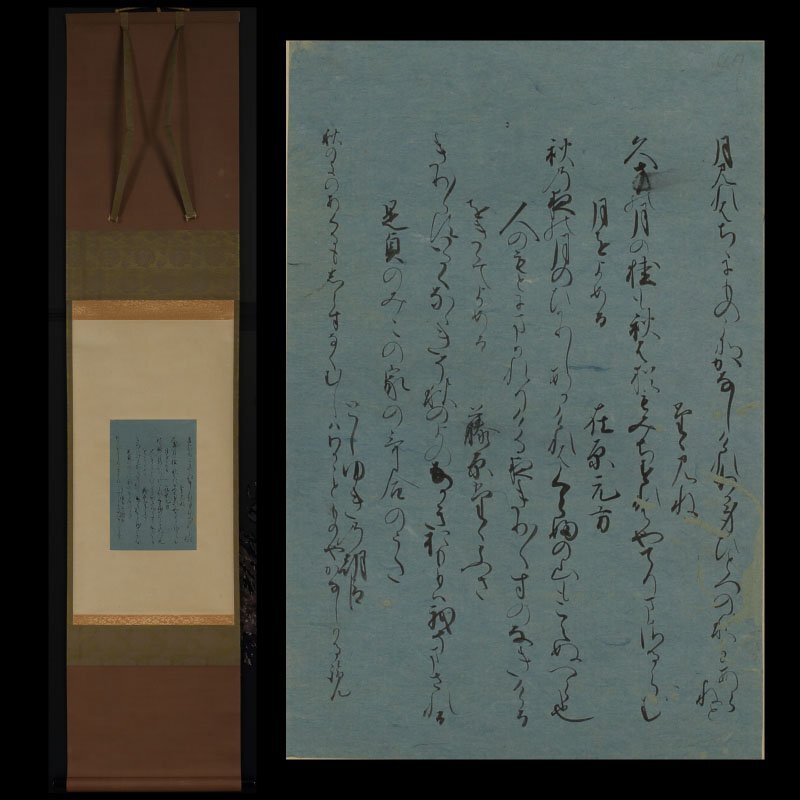 月見れはちゝにものこそかなしけれ我身ひとつの秋にはあらねと
たゝみね
久方の月の桂も秋は猶もみちすれはやてりまさるらむ
月をよめる 在原元方
秋の夜の月のひかりしあかけれはくらふの山もこえぬへら也
人のもとにまかれりける夜きり〱すのなきける
をきゝてよめる 藤原たゝふさ
きり〱すいたくなゝきそ秋のよのなかき思ひは我そまされる
是貞のみこの家の哥合のうた
としゆきの朝臣
秋のよのあくるもしらすなくむしはわかことものやかなしかるらん